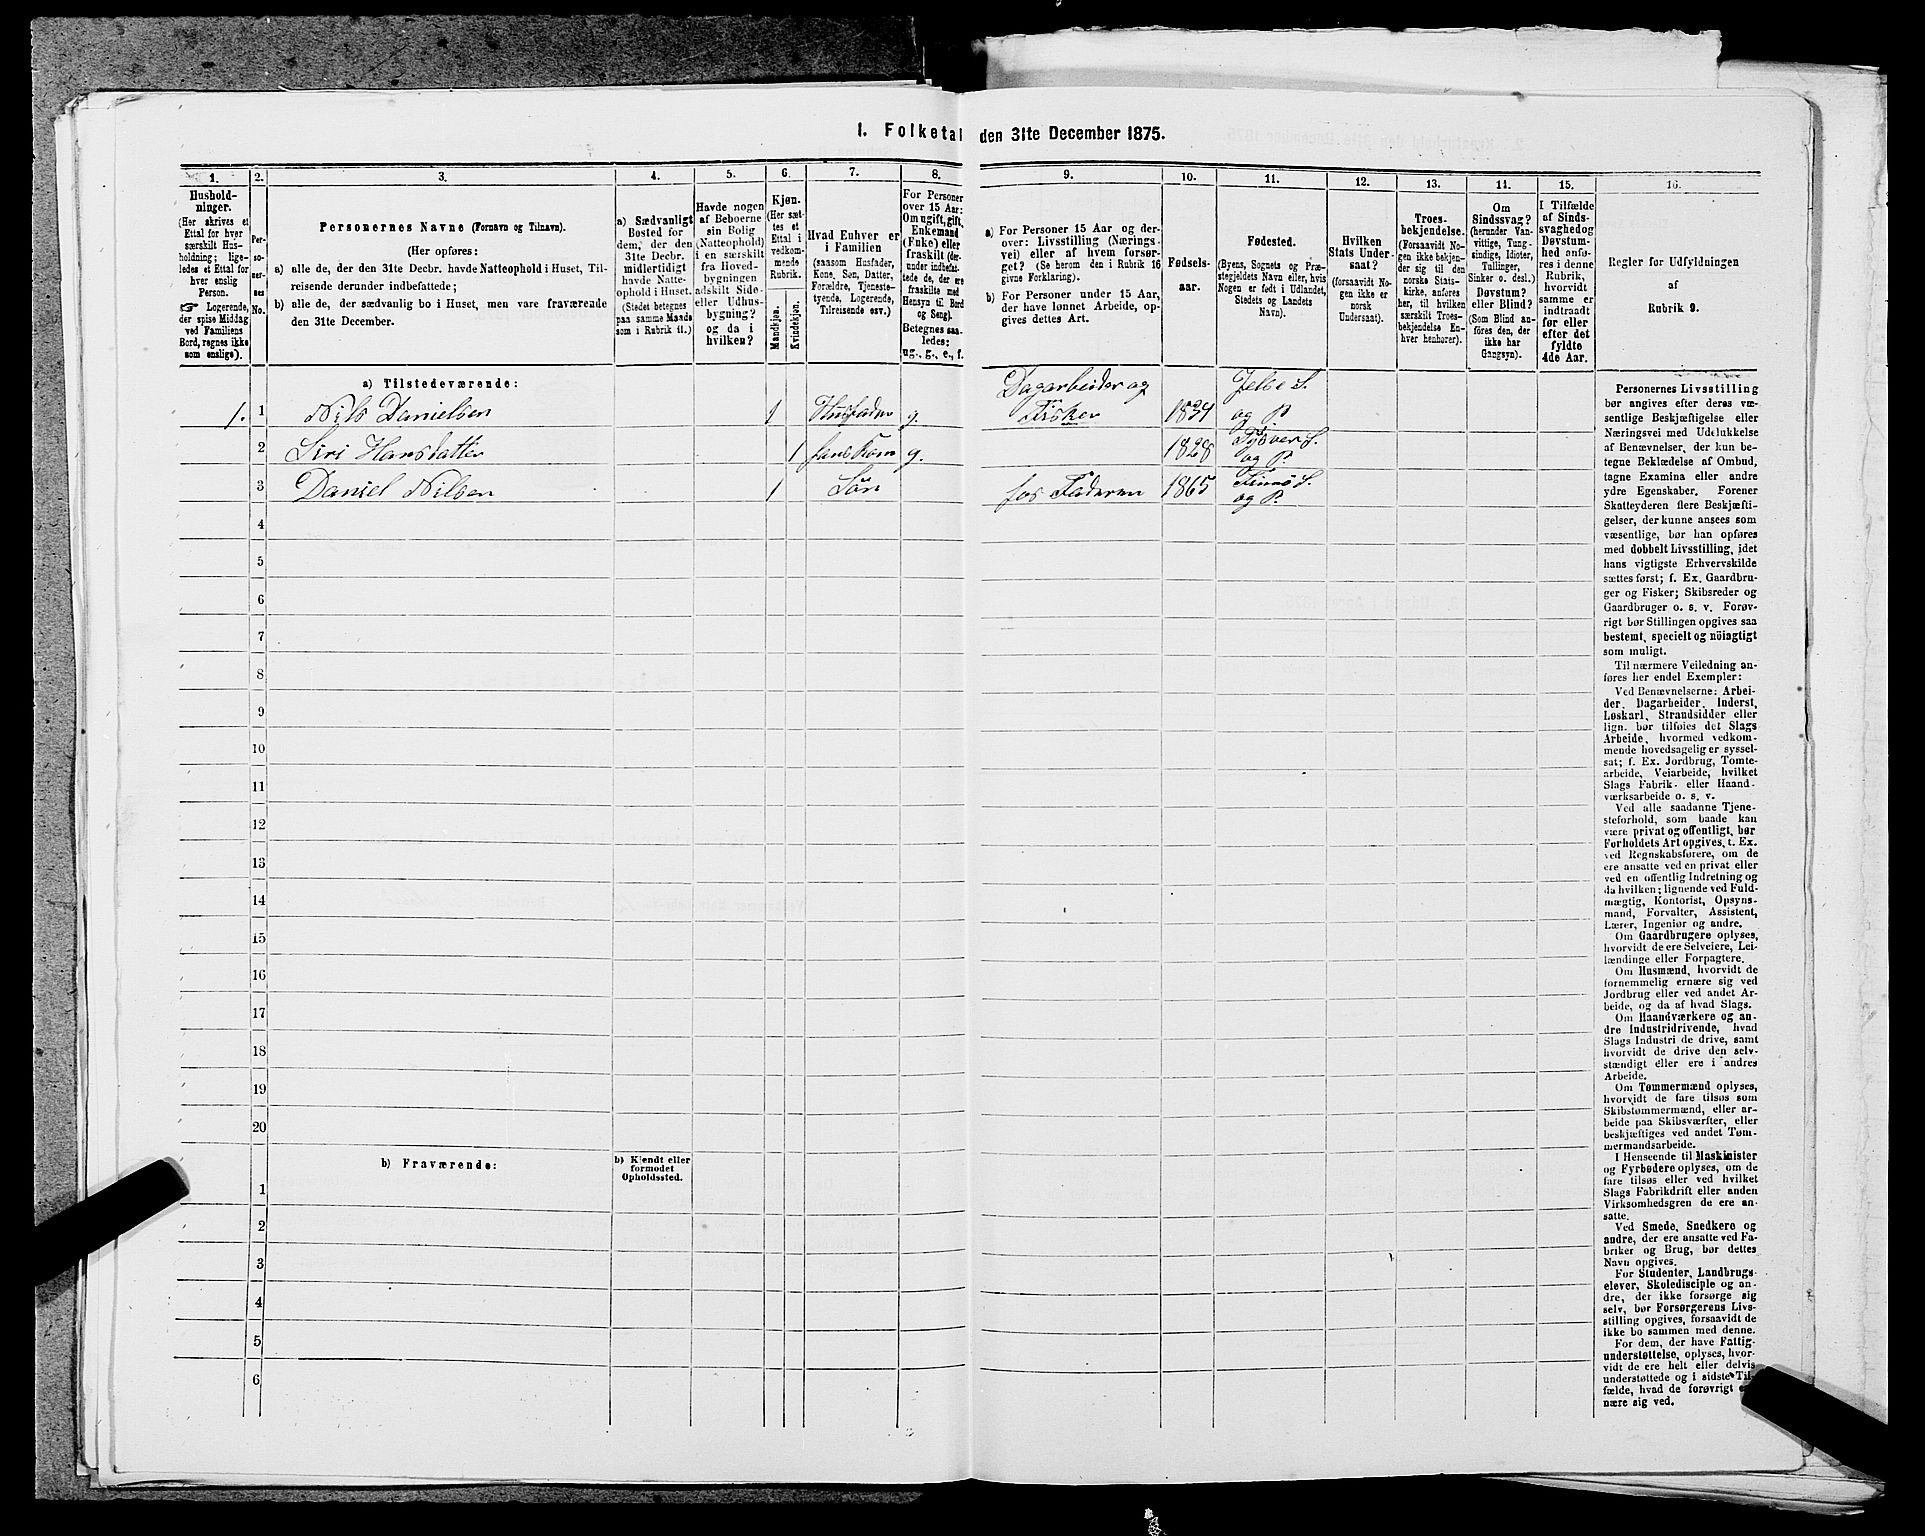 1. Folketal den 31te December 1875.
1. 2. 3. 4. 5. 6. 7. 8. 9. 10. 11. 12. 13. 14. 15. 16.
Hushold-
ninger.
(Her skrives et
Ettal for hver
særskilt Hus-
holdning; lige-
ledes et Ettal for
hver enslig
Person.
☞ Logerende,
der spise Middag
ved Familiens
Bord, regnes ikke
som enslige).
Per-
so-
ner-
nes
No.
Personernes Navne (Fornavn og Tilnavn).
(Her opføres:
a) alle de, der den 31te Decbr. havde Natteophold i Huset, Til-
reisende derunder indbefattede;
b) alle de, der sædvanlig bo i Huset, men vare fraværende
den 31te December.
a) Sædvanligt
Bosted for
dem, der den
31te Decbr.
midlertidigt
havde Natte-
ophold i Huset.
(Stedet betegnes
paa samme Maade
som i Rubrik 11.)
Havde nogen
af Beboerne
sin Bolig
(Natteophold)
i en særskilt
fra Hoved-
bygningen
adskilt Side-
eller Udhus-
bygning?
og da i
hvilken?
Kjøn.
(Her sæt-
tes et
Ettal i
vedkom-
mende
Rubrik.
Mandkjøn.
Kvindekjøn.
Hvad Enhver er
i Familien
(saasom Husfader,
Kone, Søn, Datter,
Forældre, Tjeneste-
tyende, Logerende,
Tilreisende osv.)
For Personer
over 15 Aar:
Om ugift, gift,
Enkemand
(Enke) eller
fraskilt (der-
under indbefat-
tede de, der ere
fraskilte med
Hensyn til Bord
og Seng).
Betegnes saa-
ledes:
ug., g., e., f.
a) For Personer 15 Aar og der-
over: Livsstilling (Nærings-
vei) eller af hvem forsør-
get? (Se herom den i Rubrik 16
givne Forklaring).
b) For Personer under 15 Aar,
der have lønnet Arbeide, op-
gives dettes Art.
Fødsels-
aar.
Fødested.
(Byens, Sognets og Præ-
stegjeldets Navn eller, hvis
Nogen er født i Udlandet,
Stedets og Landets
Navn).
Hvilken
Stats Under-
saat?
(forsaavidt No-
gen ikke er
norsk
Undersaat).
Troes-
bekjendelse.
(Forsaavidt No-
gen ikke bekjen-
der sig til den
norske Stats-
kirke, anføres
her, til hvilken
særskilt Troes-
bekjendelse En-
hver henhører).
Om
Sindssvag?
(herunder Van-
vittige, Tung-
sindige, Idioter,
Tullinger,
Sinker o. desl.)
Døvstum?
eller Blind?
(Som Blind an-
føres den, der
ikke har
Gangsyn).
I Tilfælde
af Sinds-
svaghed og
Døvstum-
hed anfø-
res i denne
Rubrik,
hvorvidt
samme er
indtraadt
før eller
efter det
fyldte
4de Aar.
Regler for Udfyldningen
af
Rubrik 9.
a) Tilstedeværende:
1. 1 Nils Danielsen 1 Husfader g. Dagarbeider og Fisker 1834 Jelse S. og P.
2 Siri Hansdatter 1 hans Kone g. 1828 Tysver S. og P.
3 Daniel Nilsen 1 Søn hos Faderen 1865 Finnø S. og P.
4
5
6
7
8
9
10
11
12
13
14
15
16
17
18
19
20
b) Fraværende:
b) Kjendt eller
formodet
Opholdssted.
1
2
3
4
5
6
Personernes Livsstilling
bør angives efter deres væ-
sentlige Beskjæftigelse eller
Næringsvei med Udelukkelse
af Benævnelser, der kun be-
tegne Beklædelse af Ombud,
tagne Examina eller andre
ydre Egenskaber. Forener
Skatteyderen flere Beskjæfti-
gelser, der kunne ansees som
væsentlige, bør han opføres
med dobbelt Livsstilling, idet
hans vigtigste Erhvervskilde
sættes først; f. Ex. Gaardbru-
ger og Fisker; Skibsreder og
Gaardbruger o. s. v. Forøv-
rigt bør Stillingen opgives saa
bestemt, specielt og nöiagtigt
som muligt.
Til nærmere Veiledning an-
føres her endel Exempler:
Ved Benævnelserne: Arbei-
der, Dagarbeider, Inderst,
Løskarl, Strandsidder eller
lign. bør tilføies det Slags
Arbeide, hvormed vedkom-
mende hovedsagelig er syssel-
sat; f. Ex. Jordbrug, Tomte-
arbeide, Veiarbeide, hvilket
Slags Fabrik- eller Haand-
værksarbeide o. s. v.
Ved alle saadanne Tjene-
steforhold, som baade kan
være privat og offentligt, bør
Forholdets Art opgives, t. Ex.
ved Regnskabsførere, om de
ere ansatte ved en privat eller
ved en offentlig Indretning og
da hvilken; lignende ved Fuld-
mægtig, Kontorist, Opsyns-
mand, Forvalter, Assistent,
Lærer, Ingeniør og andre.
Om Gaardbrugere oplyses,
hvorvidt de ere Selveiere, Lei-
lændinge eller Forpagtere.
Om Husmænd, hvorvidt de
fornemmelig ernære sig ved
Jordbrug eller ved andet Ar-
beide, og da af hvad Slags.
Om Haandværkere og an-
dre Industridrivende, hvad
Slags Industri de drive, samt
hvorvidt de drive den selv-
stændigt eller ere i andres
Arbeide.
Om Tømmermænd oplyses,
hvorvidt de fare tilsøs som
Skibstømmermænd, eller ar-
beide paa Skibsværfter, eller
beskjæftiges ved andet Tøm-
mermandsarbeide.
I Henseende til Maskinister
og Fyrbødere oplyses, om de
fare tilsøs eller ved hvilket
Slags Fabrikdrift eller anden
Virksomhedsgren de ere an-
satte.
Ved Smede, Snedkere og
andre, der ere ansatte ved Fa-
briker og Brug, bør dettes
Navn opgives.
For Studenter, Landbrugs-
elever, Skoledisciple og an-
dre, der ikke forsørge sig
selv, bør Forsørgerens Livs-
stilling opgives, forsaavidt de
ikke bo sammen med denne.
For dem, der have Fattig-
understøttelse, oplyses, hvor-
vidt de ere helt eller delvis
understøttede og i sidste Til-
fælde, hvad de forøvrigt er-
nære sig ved.